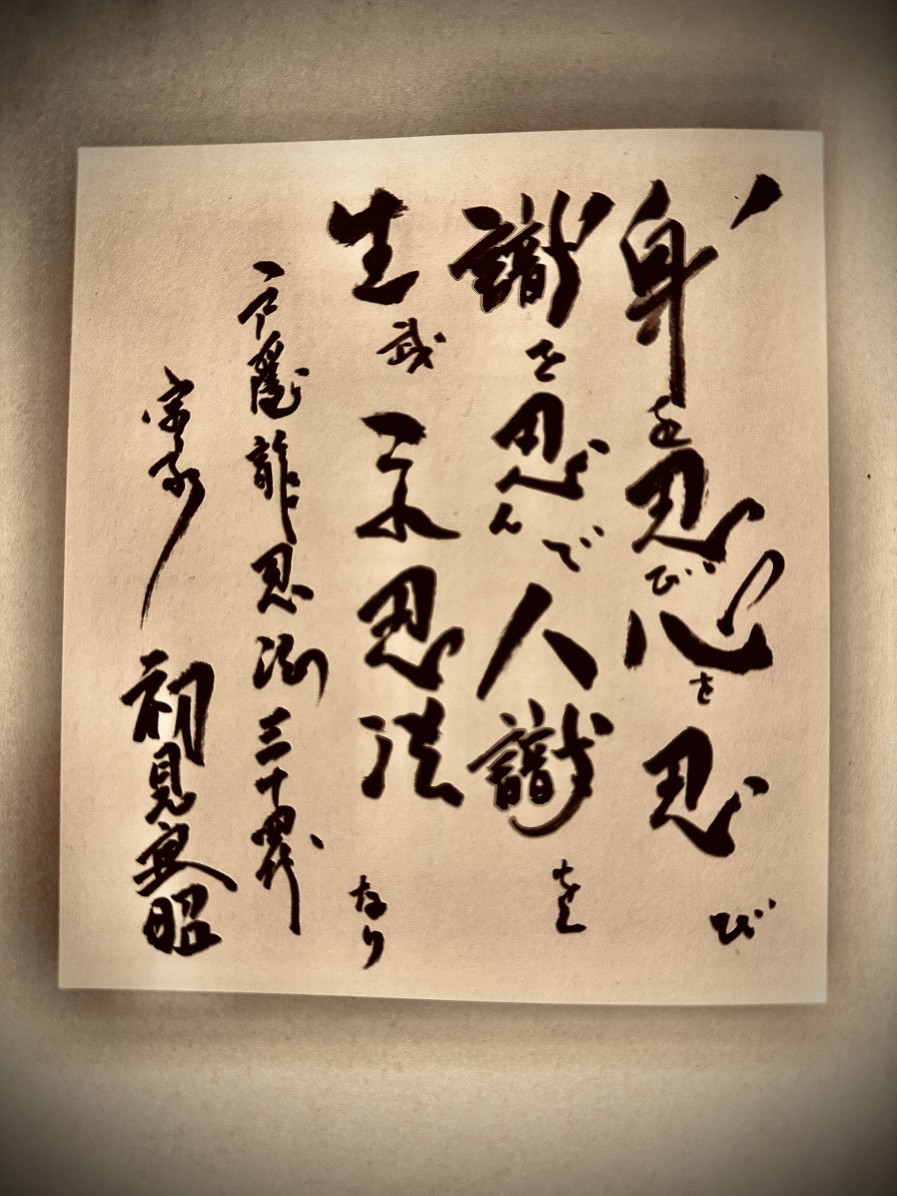 身を忍び心を忍び
識を忍んで人識を
生武忍法なり
戸隠龍忍法三十四代
宗家 初見良昭